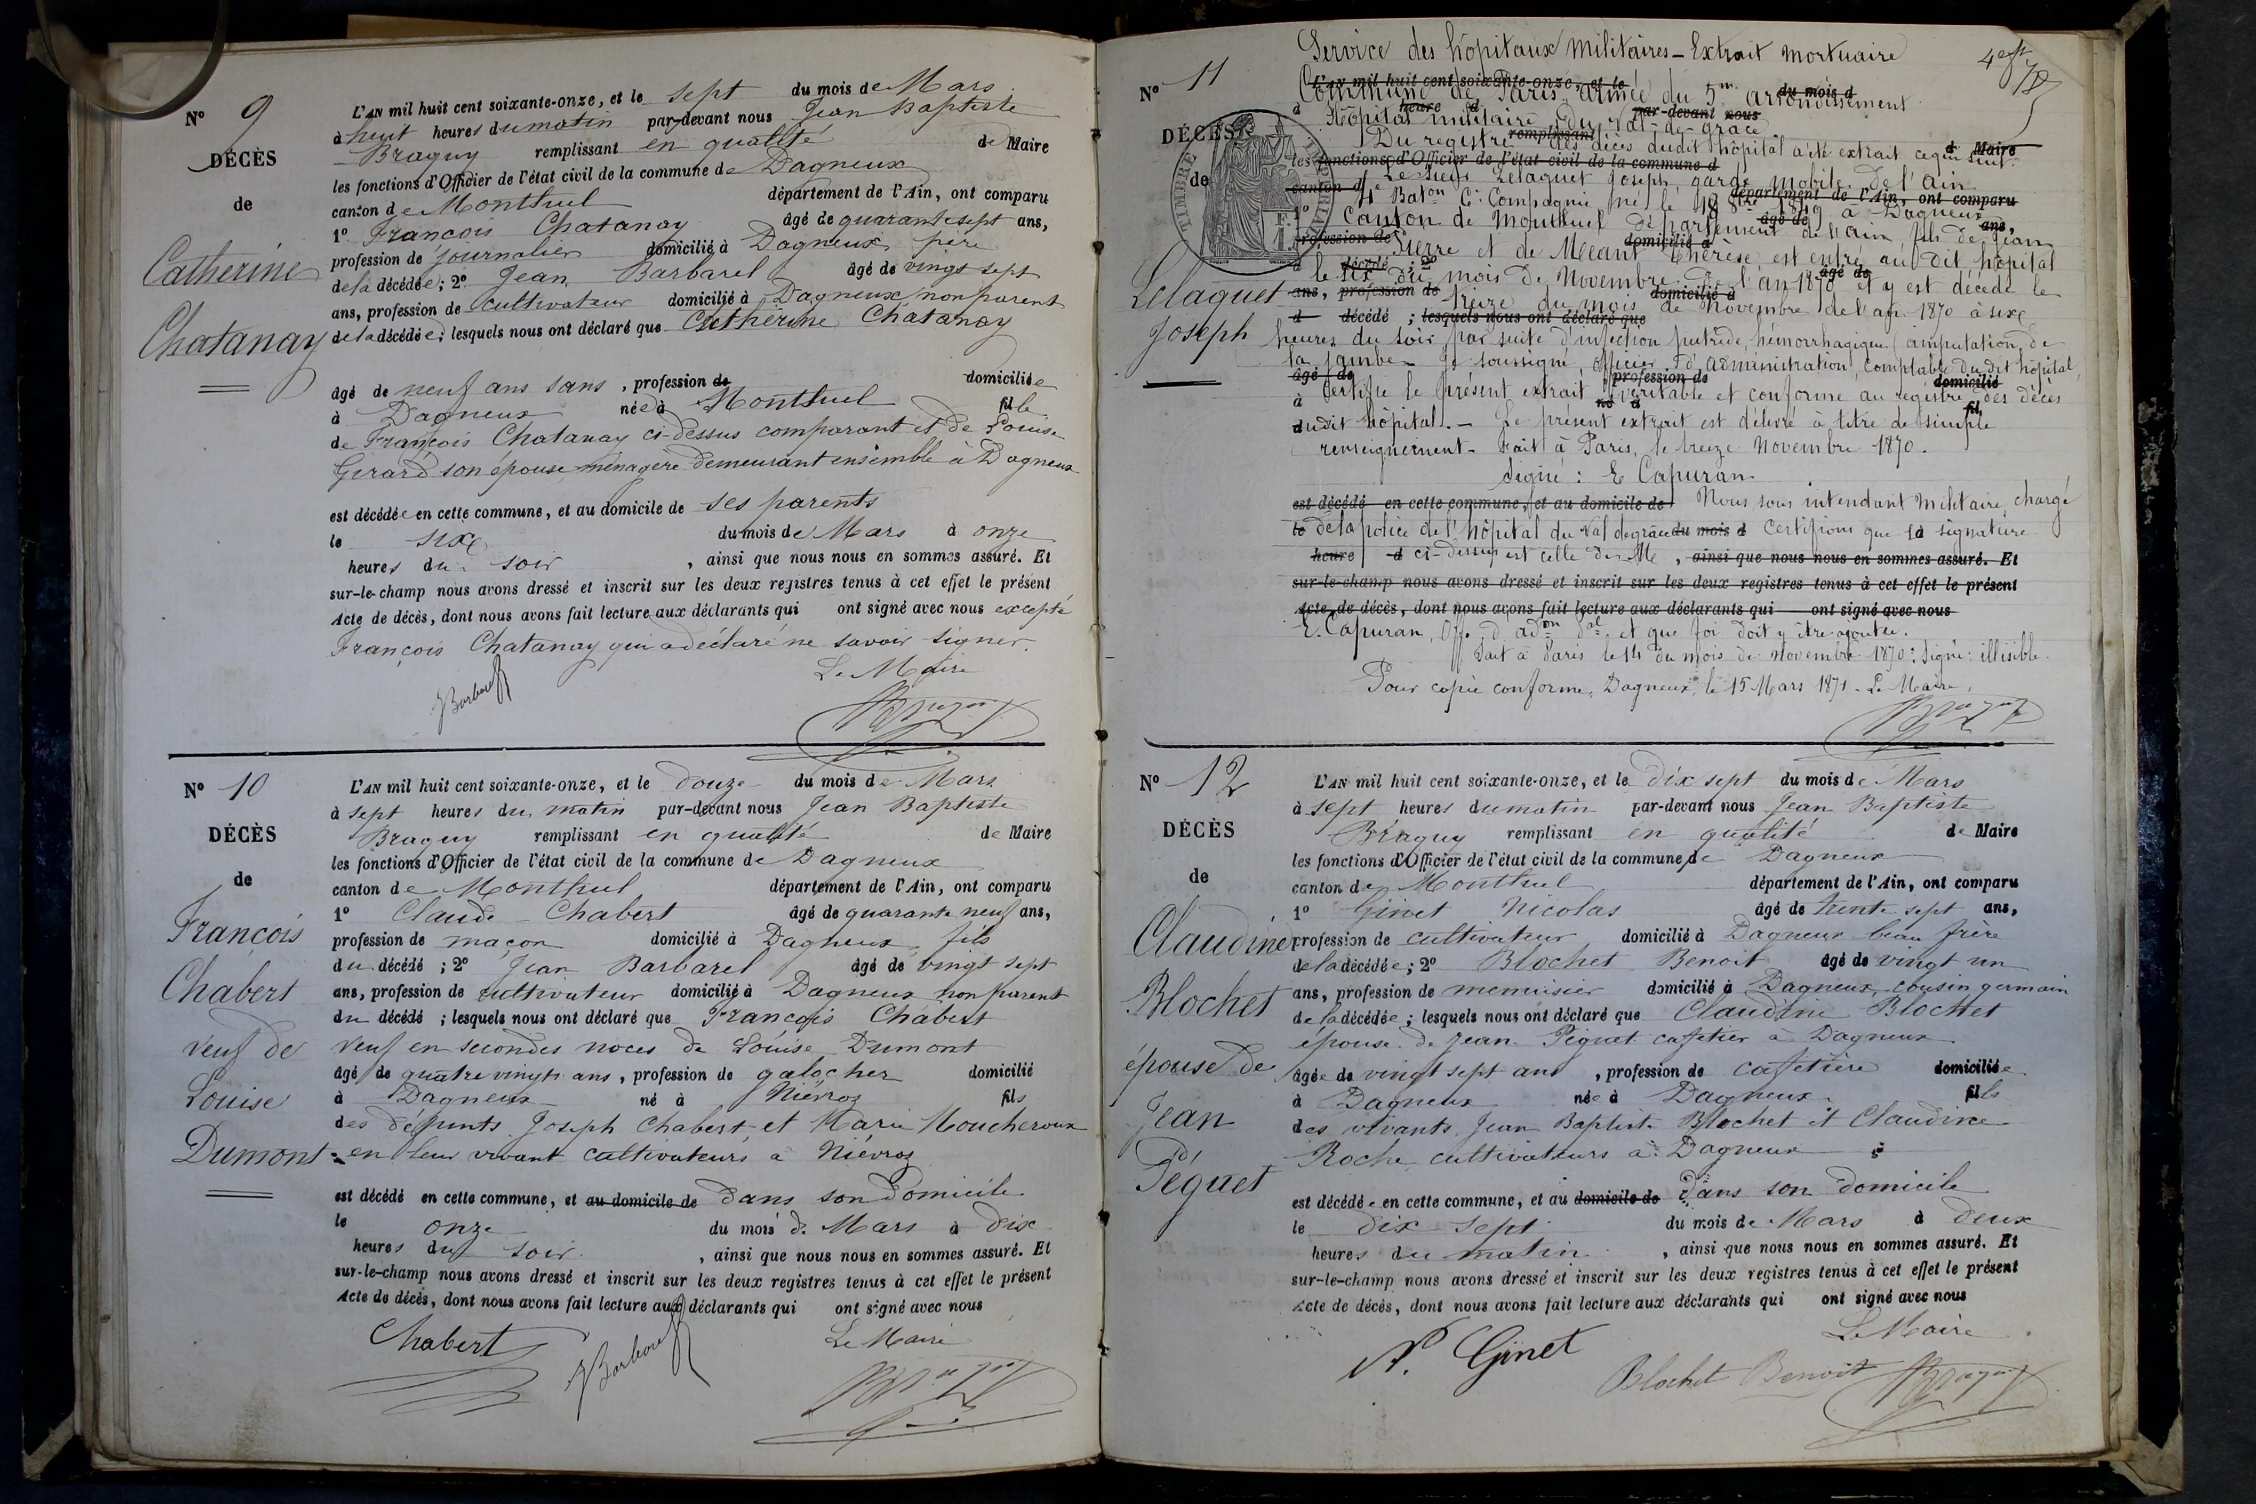 N° 9
DÉCÈS
de
Catherine
Chatanay
L'AN mil huit cent soixante-onze, et le sept du mois de Mars
à huit heures du matin par-devant nous Jean Baptiste
Braguy remplissant en qualité de Maire
les fonctions d'Officier de l'état civil de la commune de Dagneux
canton de Montluel département de l'Ain, ont comparu
1° François Chatanay âgé de quarante sept ans,
profession de journalier domicilié à Dagneux, père
de la décédée; 2° Jean Barbarel âgé de vingt sept
ans, profession de cultivateur domicilié à Dagneux, non parent
de la décédée; lesquels nous ont déclaré que Cathérine Chatanay
âgé de neuf ans sans, profession de domiciliée
à Dagneux née à Montluel fille
de François Chatanay ci-dessus comparant et de Louise
Girard son épouse, ménagère demeurant ensemble à Dagneux
est décédée en cette commune, et au domicile de ses parents
le six du mois de Mars à onze
heures du soir, ainsi que nous nous en sommes assuré. Et
sur-le-champ nous avons dressé et inscrit sur les deux registres tenus à cet effet le présent
Acte de décès, dont nous avons fait lecture aux déclarants qui ont signé avec nous excepté
François Chatanay qui a déclaré ne savoir signer.
Le Maire
N° 10
DÉCÈS
de
François
Chabert
veuf de
Louise
Dumont
L'AN mil huit cent soixante-onze, et le douze du mois de Mars
à sept heures du matin par-devant nous Jean Baptiste
Braguy remplissant en qualité de Maire
les fonctions d'Officier de l'état civil de la commune de Dagneux
canton de Montluel département de l'Ain, ont comparu
1° Claude Chabert âgé de quarante neuf ans,
profession de maçon domicilié à Dagneux, fils
du décédé; 2° Jean Barbarel âgé de vingt sept
ans, profession de cultivateur domicilié à Dagneux non parent
du décédé; lesquels nous ont déclaré que François Chabert
veuf en secondes noces de Louise Dumont
âgé de quatre vingts ans, profession de galocher domicilié
à Dagneux né à Niévroz fils
des défunts Joseph Chabert et Marie Moucheroux
en leur vivant cultivateurs à Niévroz
est décédé en cette commune, et au domicile de dans son domicile
le onze du mois de Mars à dix
heures du soir, ainsi que nous nous en sommes assuré. Et
sur-le-champ nous avons dressé et inscrit sur les deux registres tenus à cet effet le présent
Acte de décès, dont nous avons fait lecture aux déclarants qui ont signé avec nous
Le Maire
Chabert
N° 11
DÉCÈS
de
Lelaquet
Joseph
Service des hôpitaux militaires - Extrait mortuaire
L'AN mil huit cent soixante-onze, et le du mois d
Commune de Paris armée du 5me arrondissement
à heure d par-devant nous
Hôpital militaire du Val-de-grâce
remplissant d Maire
Du registre des décès dudit hôpital a été extrait ce qui suit:
les fonctions d'Officier de l'état civil de la commune d
Le Sieur Lelaquet Joseph, garde mobile de l'ain
canton d département de l'Ain, ont comparu
4e Baton Cie Compagnie né le 1849 à Dagneux
1° âgé de ans,
Canton de Montluel département de l'ain, fils de Jean
profession de domicilié à
Pierre et de Méant Thérèse, est entré au dit hôpital
d décédé; 2° âgé de
le six du mois de Novembre de l'an 1870 et y est décédé le
ans, profession de domicilié à
treize du mois de Novembre de l'an 1870 à six
d décédé; lesquels nous ont déclaré que
heures du soir par suite d'infection putride, hémorrhagique (amputation de
la jambe. Je soussigné, officier d'administration, Comptable du dit hôpital,
âgé de profession de domicilié
à Certifie le présent extrait véritable et conforme au registre des décès
né à fil
dudit hôpital. - Le présent extrait est délivré à titre de simple
renseignement. Fait à Paris, le treize Novembre 1870.
Signé: E Capuran
est décédé en cette commune, et au domicile de Nous sous intendant Militaire, chargé
le de la police de l'hôpital du Val de grâce du mois d Certifions que la signature
heure d ci-dessus est celle de Me, ainsi que nous nous en sommes assuré. Et
sur-le-champ nous avons dressé et inscrit sur les deux registres tenus à cet effet le présent
Acte de décès, dont nous avons fait lecture aux déclarants qui ont signé avec nous
E. Capuran, Off. d'adon et que foi doit y être ajoutée.
Fait à Paris le 14 du mois de Novembre 1870: Signé: illisible.
Pour copie conforme, Dagneux, le 15 Mars 1871. Le Maire,
N° 12
DÉCÈS
de
Claudine
Blochet
épouse de
Jean
Péguet
L'AN mil huit cent soixante-onze, et le dix sept du mois de Mars
à sept heures du matin par-devant nous Jean Baptiste
Braguy remplissant en qualité de Maire
les fonctions d'Officier de l'état civil de la commune de Dagneux
canton de Montluel département de l'Ain, ont comparu
1° Ginet Nicolas âgé de trente sept ans,
profession de cultivateur domicilié à Dagneux beau frère
de la décédée; 2° Blochet Benoit âgé de vingt un
ans, profession de menuisier domicilié à Dagneux, cousin germain
de la décédée; lesquels nous ont déclaré que Claudine Blochet
épouse de Jean Péguet cafetier à Dagneux
âgée de vingt sept ans, profession de cafetière domiciliée
à Dagneux née à Dagneux fille
des vivants Jean Baptiste Blochet et Claudine
Roche, cultivateurs à Dagneux
est décédée en cette commune, et au domicile de dans son domicile
le dix sept du mois de Mars à deux
heures du matin, ainsi que nous nous en sommes assuré. Et
sur-le-champ nous avons dressé et inscrit sur les deux registres tenus à cet effet le présent
Acte de décès, dont nous avons fait lecture aux déclarants qui ont signé avec nous
Le Maire
N. Ginet
Blochet Benoit